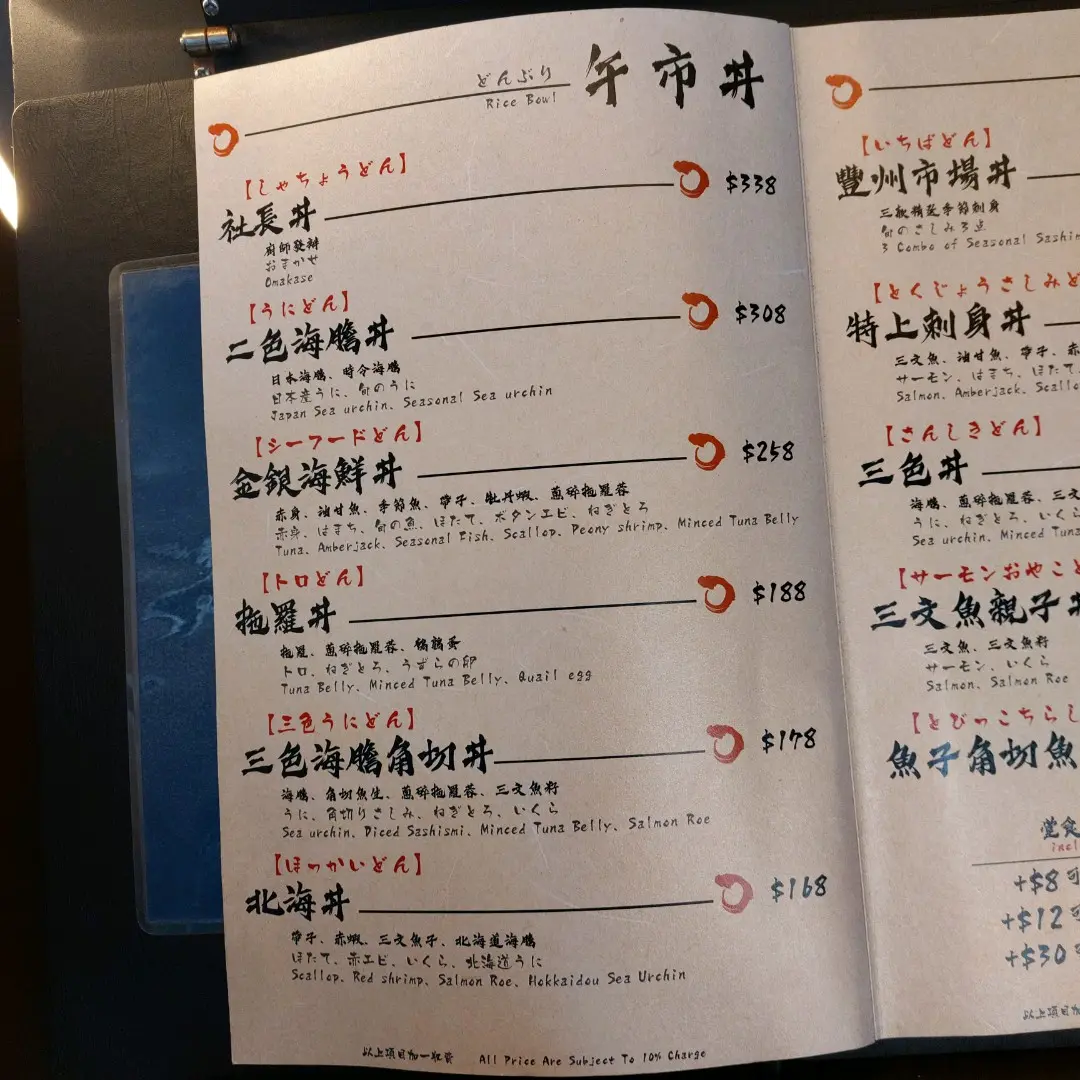 どんぶり
Rice Bowl
午市丼
【しゃちょうどん】
社長丼 $338
廚師發辦
おまかせ
Omakase
【うにどん】
二色海膽丼 $308
日本海膽、時令海膽
日本産うに、旬のうに
Japan Sea urchin、Seasonal Sea urchin
【シーフードどん】
金銀海鮮丼 $258
赤身、油甘魚、季節魚、帶子、牡丹蝦、蔥碎拖羅蓉
赤身、はまち、旬の魚、ほたて、ボタンエビ、ねぎとろ
Tuna、Amberjack、Seasonal Fish、Scallop、Peony shrimp、Minced Tuna Belly
【トロどん】
拖羅丼 $188
拖羅、蔥碎拖羅蓉、鵪鶉蛋
トロ、ねぎとろ、うずらの卵
Tuna Belly、Minced Tuna Belly、Quail egg
【三色うにどん】
三色海膽角切丼 $178
海膽、角切魚生、蔥碎拖羅蓉、三文魚籽
うに、角切りさしみ、ねぎとろ、いくら
Sea urchin、Diced Sashismi、Minced Tuna Belly、Salmon Roe
【ほっかいどん】
北海丼 $168
帶子、赤蝦、三文魚子、北海道海膽
ほたて、赤エビ、いくら、北海道うに
Scallop、Red shrimp、Salmon Roe、Hokkaidou Sea Urchin
以上項目加一收費 All Price Are Subject To 10% Charge
【いちばどん】
豐州市場丼
三款精選季節刺身
旬のさしみ3点
3 Combo of Seasonal Sashim
【とくじょうさしみど
特上刺身丼
三文魚、油甘魚、帶子、赤
サーモン、はまち、ほたて、
Salmon、Amberjack、Scallo
【さんしきどん】
三色丼
海膽、蔥碎拖羅蓉、三文
うに、ねぎとろ、いくら
Sea urchin、Minced Tuna
【サーモンおやこど
三文魚親子丼
三文魚、三文魚籽
サーモン、いくら
Salmon、Salmon Roe
【とびっこちらし
魚子角切魚
堂食
incl
+$8 可
+$12 可
+$30
以上項目加